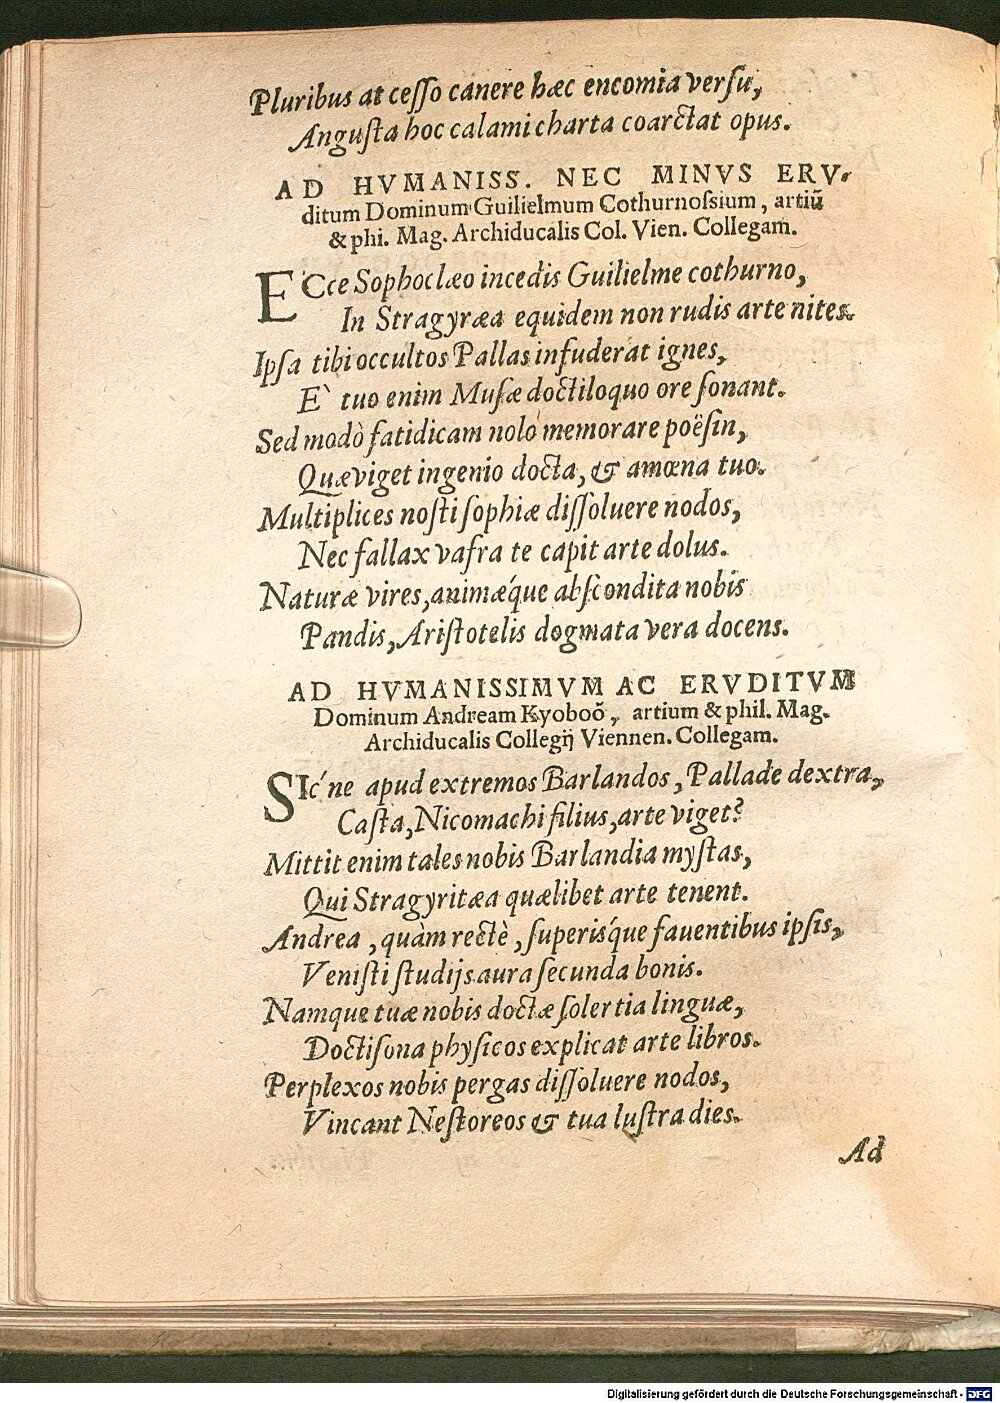 Pluribus at ceſſo canere hæc encomia verſu,
Anguſta hoc calami charta coarctat opus.
AD HVMANISS. NEC MINVS ERV-
ditum Dominum Guilielmum Cothurnoſsium, artiū
& phi. Mag. Archiducalis Col. Vien. Collegam.
ECce Sophoclæo incedis Guilielme cothurno,
In Stragyræa equidem non rudis arte nites.
Ipſa tibi occultos Pallas infuderat ignes,
E` tuo enim Muſæ doctiloquo ore ſonant.
Sed modò fatidicam nolo memorare poëſin,
Quæ viget ingenio docta, & amœna tuo.
Multiplices noſti ſophiæ diſſoluere nodos,
Nec fallax vafra te capit arte dolus.
Naturæ vires, animǽque abſcondita nobis
Pandis, Ariſtotelis dogmata vera docens.
AD HVMANISSIMVM AC ERVDITVM
Dominum Andream Kyoboō, artium & phil. Mag.
Archiducalis Collegij Viennen. Collegam.
SIc´ne apud extremos Barlandos, Pallade dextra,
Caſta, Nicomachi filius, arte viget?
Mittit enim tales nobis Barlandia myſtas,
Qui Stragyritæa quælibet arte tenent.
Andrea, quàm rectè, ſuperíſque fauentibus ipſis,
Veniſti ſtudijs aura ſecunda bonis.
Namque tuæ nobis doctæ ſolertia linguæ,
Doctiſona phyſicos explicat arte libros.
Perplexos nobis pergas diſſoluere nodos,
Vincant Neſtoreos & tua luſtra dies.
Ad
Digitalisierung gefördert durch die Deutsche Forschungsgemeinschaft - DFG